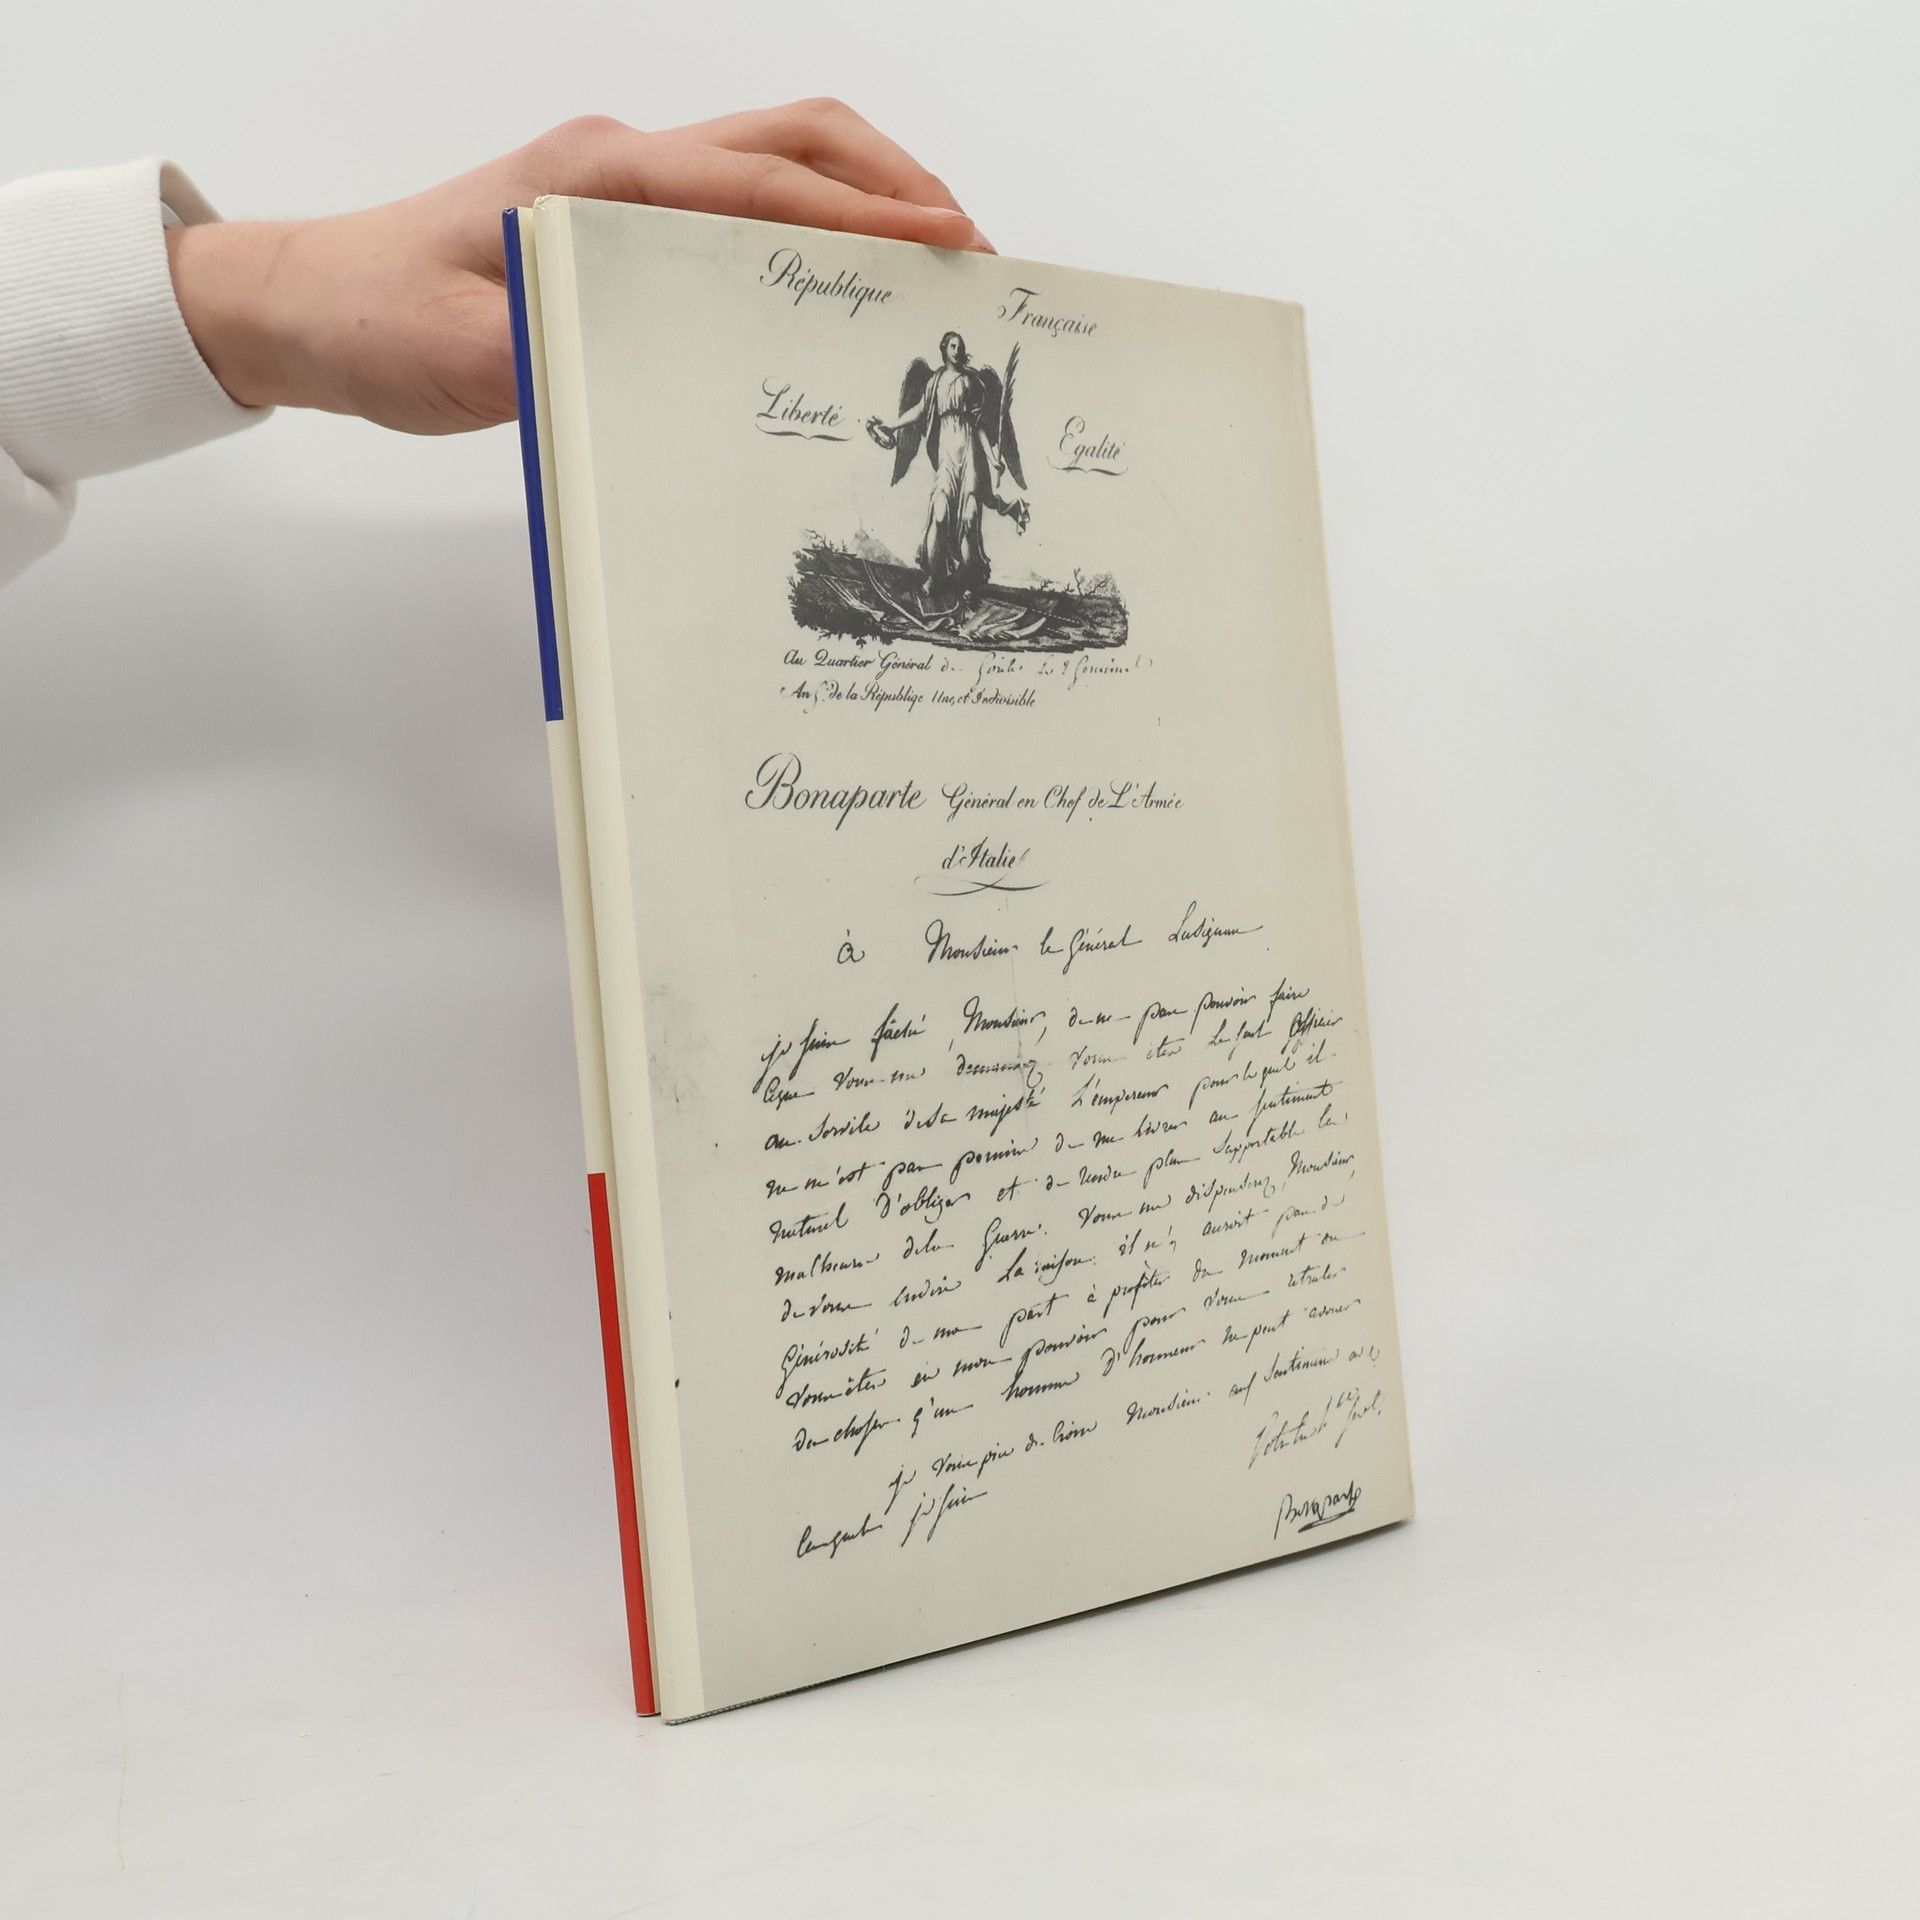 République Française
Liberté Egalité
Au Quartier Général de le 8 Germinal
An 5. de la Républiqe Une, et Indivisible
Bonaparte Général en Chef de L'Armée
d'Italie
à Monsieur le Général Lusignan
je suis fâché, Monsieur, de ne pas pouvoir faire
ceque vous me demandez vous etes le seul officier
au service de Sa majesté L'empereur pour lequel il
ne m'est pas permis de me livrer au sentiment
naturel d'obliger et de rendre plus supportable les
malheurs de la Guerre. vous me dispenserez, Monsieur,
de vous en dire La raison. il n'y auroit pas de
Générosité de ma part à profiter du moment ou
vous êtes en mon pouvoir pour vous
des choses q'un homme d'honneur ne peut avouer
je vous prie de croire Monsieur aux Sentimens avec
lesquels je suis
Bonaparte